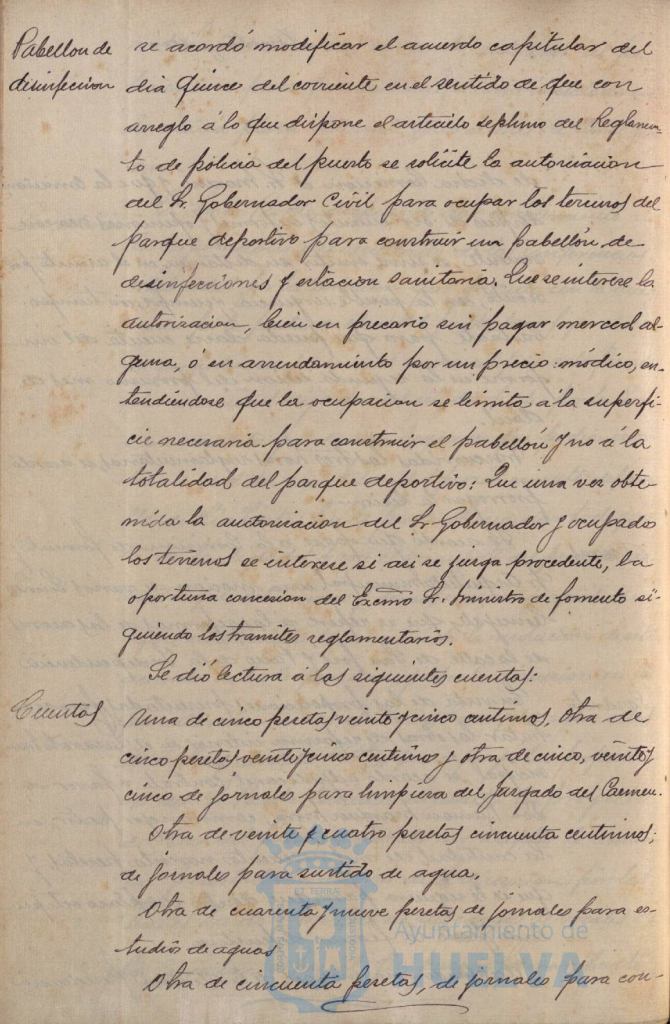 Pabellon de
desinfeccion
se acordó modificar el acuerdo capitular del
dia quince del corriente en el sentido de que con
arreglo á lo que dispone el articulo septimo del Reglamen-
to de policia del puerto se solicite la autorizacion
del Sr. Gobernador Civil para ocupar los terrenos del
parque deportivo para construir un pabellón de
desinfecciones y estacion sanitaria. Que se interese la
autorizacion, bien en precario sin pagar merced al-
guna, ó en arrendamiento por un precio módico, en-
tendiendose que la ocupacion se limita á la superfi-
cie necesaria para construir el pabellón y no á la
totalidad del parque deportivo: Que una vez obte-
nida la autorizacion del Sr Gobernador y ocupados
los terrenos se interese si asi se juzga procedente, la
oportuna concesion del Excmo Sr. Ministro de fomento si-
guiendo los tramites reglamentarios.
Se dió lectura á las siguientes cuentas:
Cuentas
Una de cinco pesetas veinte y cinco centimos. Otra de
cinco pesetas veinte y cinco centimos y otra de cinco, veinte y
cinco de jornales para limpieza del Juzgado del Carmen.
Otra de veinte y cuatro pesetas cincuenta centimos;
de jornales para surtido de agua.
Otra de cuarenta y nueve pesetas de jornales para es-
tudios de aguas
Otra de cincuenta pesetas, de jornales para con-
Ayuntamiento de
HUELVA